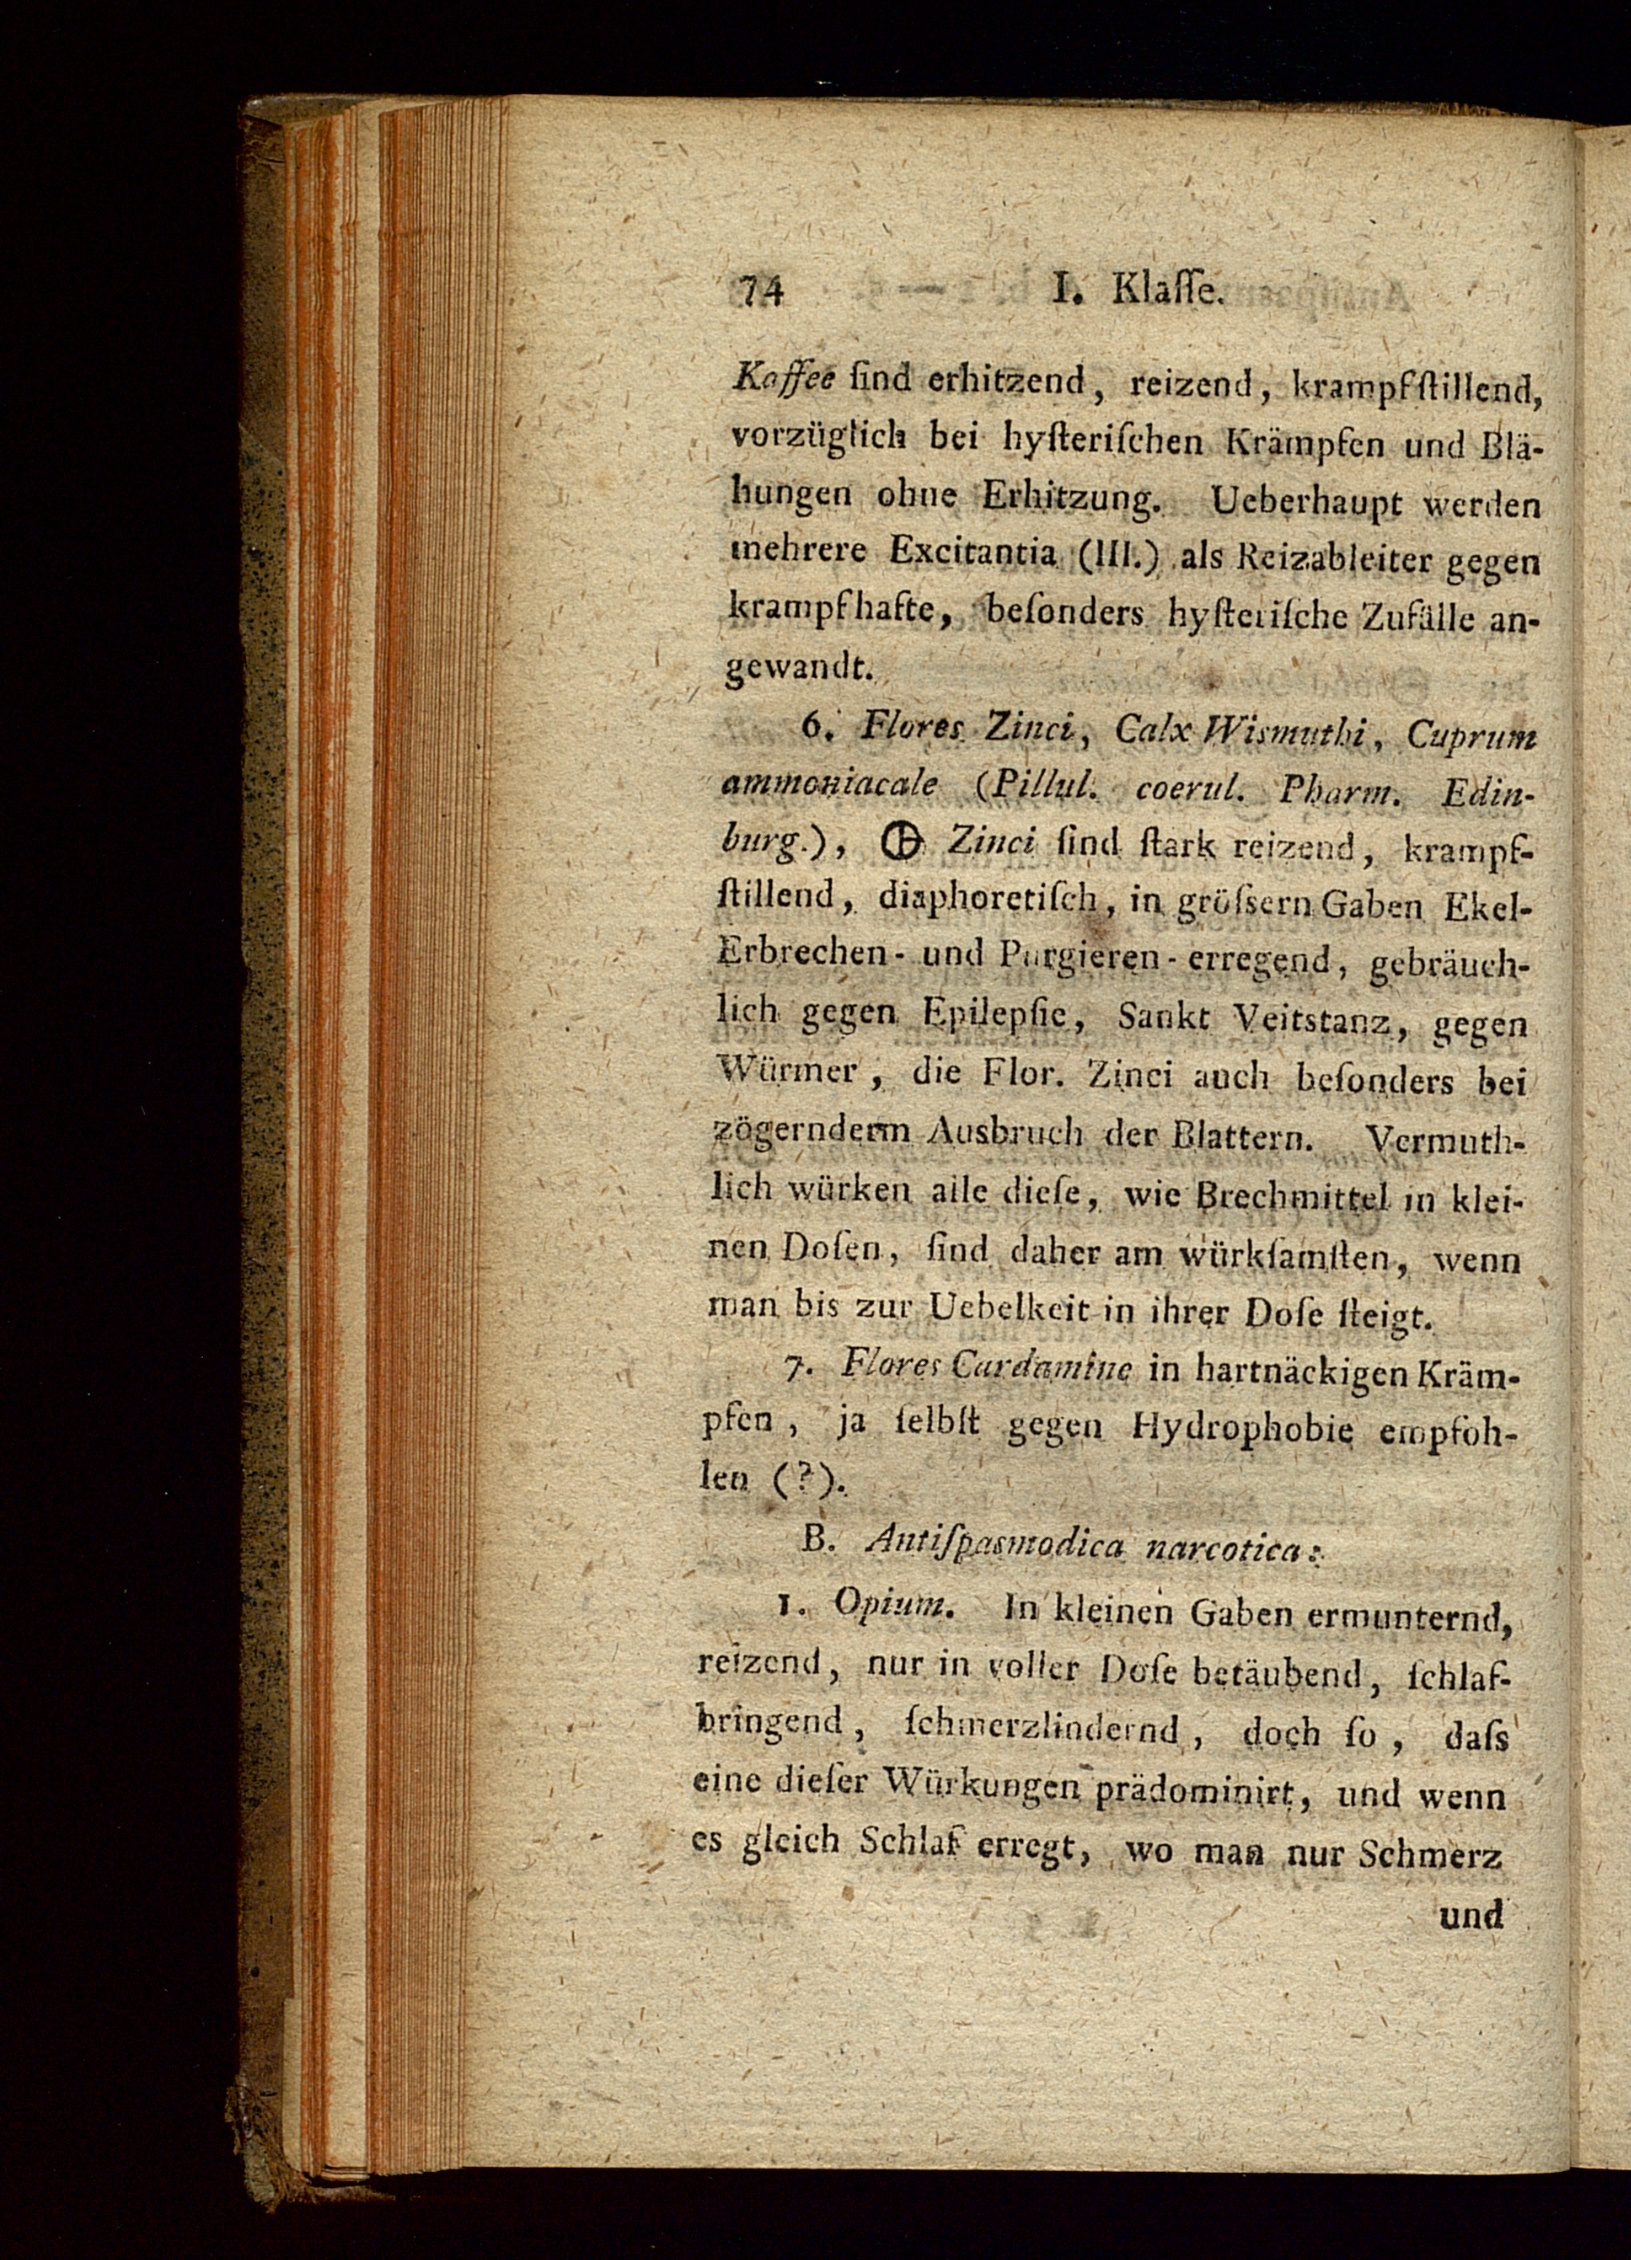 74 I. Klaſſe.
Kaffee ſind erhitzend, reizend, krampfſtillend,
vorzüglich bei hyſteriſchen Krämpfen und Blä-
hungen ohne Erhitzung. Ueberhaupt werden
mehrere Excitantia (III.) als Reizableiter gegen
krampfhafte, beſonders hyſteriſche Zufälle an-
gewandt.
6. Flores Zinci, Calx Wismuthi, Cuprum
ammoniacale (Pillul. coerul. Pharm. Edin-
burg.), Zinci ſind ſtark reizend, krampf-
ſtillend, diaphoretiſch, in gröſsern Gaben Ekel-
Erbrechen- und Purgieren-erregend, gebräuch-
lich gegen Epilepſie, Sankt Veitstanz, gegen
Würmer, die Flor. Zinci auch beſonders bei
zögernderm Ausbruch der Blattern. Vermuth-
lich würken alle dieſe, wie Brechmittel in klei-
nen Doſen, ſind daher am würkſamſten, wenn
man bis zur Uebelkeit in ihrer Doſe ſteigt.
7. Flores Cardamine in hartnäckigen Kräm-
pfen, ja ſelbſt gegen Hydrophobie empfoh-
len (?).
B. Antiſpasmodica narcotica:
1. Opium. In kleinen Gaben ermunternd,
reizend, nur in voller Doſe betäubend, ſchlaf-
bringend, ſchmerzlindernd, doch ſo, daſs
eine dieſer Würkungen prädominirt, und wenn
es gleich Schlaf erregt, wo man nur Schmerz
und